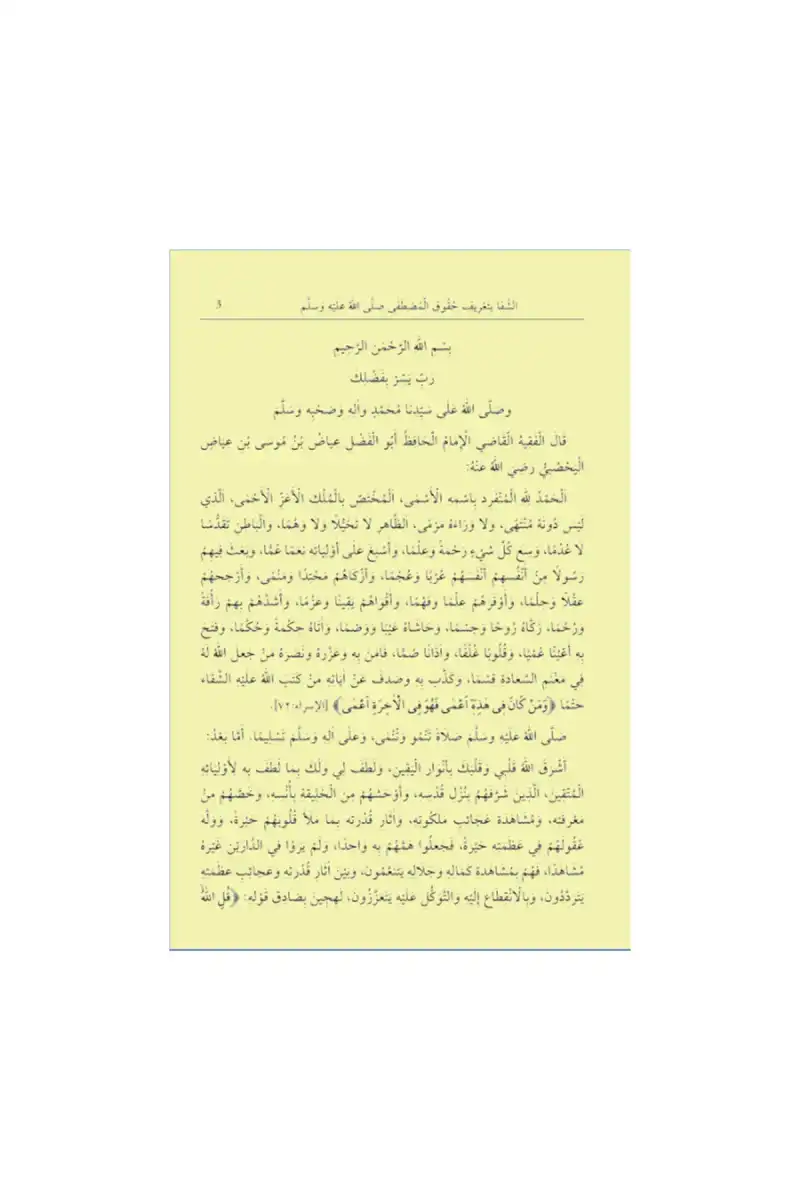 الشِّفَا بِتَعْرِيفِ حُقُوقِ الْمُصْطَفَى صَلَّى اللهُ عَلَيْهِ وَسَلَّمَ 3
بِسْمِ اللهِ الرَّحْمَنِ الرَّحِيمِ
رَبِّ يَسِّرْ بِفَضْلِكَ
وَصَلَّى اللهُ عَلَى سَيِّدِنَا مُحَمَّدٍ وَآلِهِ وَصَحْبِهِ وَسَلَّمَ
قَالَ الْفَقِيهُ الْقَاضِي الْإِمَامُ الْحَافِظُ أَبُو الْفَضْلِ عِيَاضُ بْنُ مُوسَى بْنِ عِيَاضٍ
الْيَحْصُبِيُّ رَضِيَ اللهُ عَنْهُ:
الْحَمْدُ لِلهِ الْمُنْفَرِدِ بِاسْمِهِ الْأَسْمَى، الْمُخْتَصِّ بِالْمُلْكِ الْأَعَزِّ الْأَحْمَى، الَّذِي
لَيْسَ دُونَهُ مُنْتَهًى، وَلَا وَرَاءَهُ مَرْمًى، الظَّاهِرِ لَا تَخَيُّلًا وَلَا وَهْمًا، وَالْبَاطِنِ تَقَدُّسًا
لَا عَدَمًا، وَسِعَ كُلَّ شَيْءٍ رَحْمَةً وَعِلْمًا، وَأَسْبَغَ عَلَى أَوْلِيَائِهِ نِعَمًا عُمًّا، وَبَعَثَ فِيهِمْ
رَسُولًا مِنْ أَنْفُسِهِمْ أَنْفَسَهُمْ عُرْبًا وَعُجْمًا، وَأَزْكَاهُمْ مَحْتِدًا وَمَنْمًى، وَأَرْجَحَهُمْ
عَقْلًا وَحِلْمًا، وَأَوْفَرَهُمْ عِلْمًا وَفَهْمًا، وَأَقْوَاهُمْ يَقِينًا وَعَزْمًا، وَأَشَدَّهُمْ بِهِمْ رَأْفَةً
وَرُحْمًا، زَكَّاهُ رُوحًا وَجِسْمًا، وَحَاشَاهُ عَيْبًا وَوَصْمًا، وَآتَاهُ حِكْمَةً وَحُكْمًا، وَفَتَحَ
بِهِ أَعْيُنًا عُمْيًا، وَقُلُوبًا غُلْفًا، وَآذَانًا صُمًّا، فَآمَنَ بِهِ وَعَزَّرَهُ وَنَصَرَهُ مَنْ جَعَلَ اللهُ لَهُ
فِي مَغْنَمِ السَّعَادَةِ قِسْمًا، وَكَذَّبَ بِهِ وَصَدَفَ عَنْ آيَاتِهِ مَنْ كَتَبَ اللهُ عَلَيْهِ الشَّقَاءَ
حَتْمًا ﴿وَمَنْ كَانَ فِي هَذِهِ أَعْمَى فَهُوَ فِي الْآخِرَةِ أَعْمَى﴾ [الإسراء:٧٢].
صَلَّى اللهُ عَلَيْهِ وَسَلَّمَ صَلَاةً تَنْمُو وَتُنْمَى، وَعَلَى آلِهِ وَسَلَّمَ تَسْلِيمًا. أَمَّا بَعْدُ:
أَشْرَقَ اللهُ قَلْبِي وَقَلْبَكَ بِأَنْوَارِ الْيَقِينِ، وَلَطَفَ لِي وَلَكَ بِمَا لَطَفَ بِهِ لِأَوْلِيَائِهِ
الْمُتَّقِينَ، الَّذِينَ شَرَّفَهُمْ بِنُزُلِ قُدْسِهِ، وَأَوْحَشَهُمْ مِنَ الْخَلِيقَةِ بِأُنْسِهِ، وَخَصَّهُمْ مِنْ
مَعْرِفَتِهِ، وَمُشَاهَدَةِ عَجَائِبِ مَلَكُوتِهِ، وَآثَارِ قُدْرَتِهِ بِمَا مَلَأَ قُلُوبَهُمْ حَبْرَةً، وَوَلَّهَ
عُقُولَهُمْ فِي عَظَمَتِهِ حَيْرَةً، فَجَعَلُوا هَمَّهُمْ بِهِ وَاحِدًا، وَلَمْ يَرَوْا فِي الدَّارَيْنِ غَيْرَهُ
مُشَاهَدًا، فَهُمْ بِمُشَاهَدَةِ كَمَالِهِ وَجَلَالِهِ يَتَنَعَّمُونَ، وَبَيْنَ آثَارِ قُدْرَتِهِ وَعَجَائِبِ عَظَمَتِهِ
يَتَرَدَّدُونَ، وَبِالِانْقِطَاعِ إِلَيْهِ وَالتَّوَكُّلِ عَلَيْهِ يَتَعَزَّزُونَ، لَهِجِينَ بِصَادِقِ قَوْلِهِ: ﴿قُلِ اللهُ